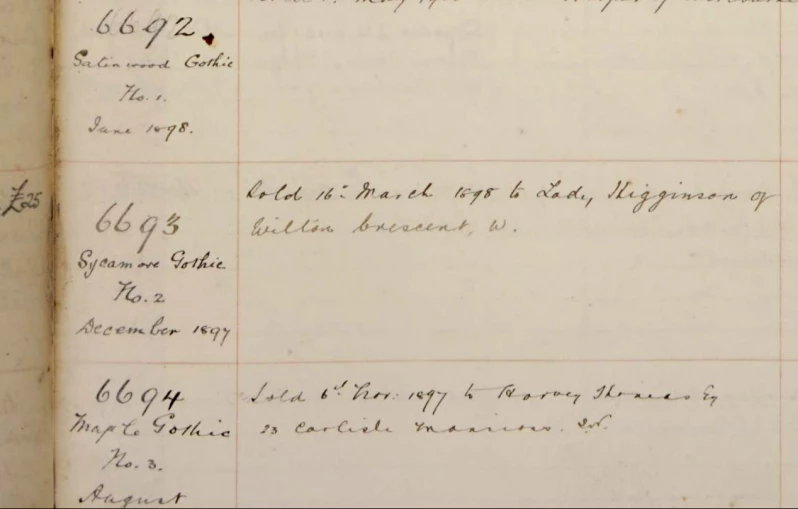 6692.
Satinwood Gothic
No. 1.
June 1898.
£25
Sold 16th March 1898 to Lady Higginson of
Wilton Crescent, W.
6693
Sycamore Gothic
No. 2
December 1897
6694
Maple Gothic
No. 3.
August
Sold 6th Nov: 1897 to Harvey Thomas Esq
23 Carlisle Mansions. S.W.